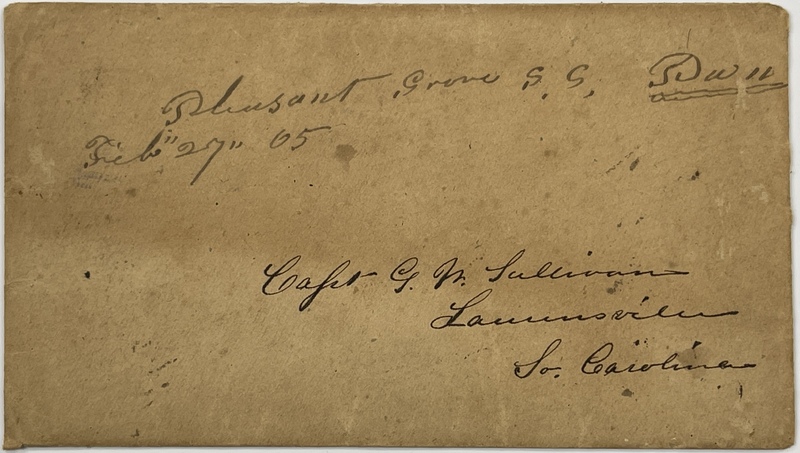 Pleasant Grove S. C, Paid
Feb" 27" 65
Capt G. W. Sullivan
Laurensville
So. Carolina